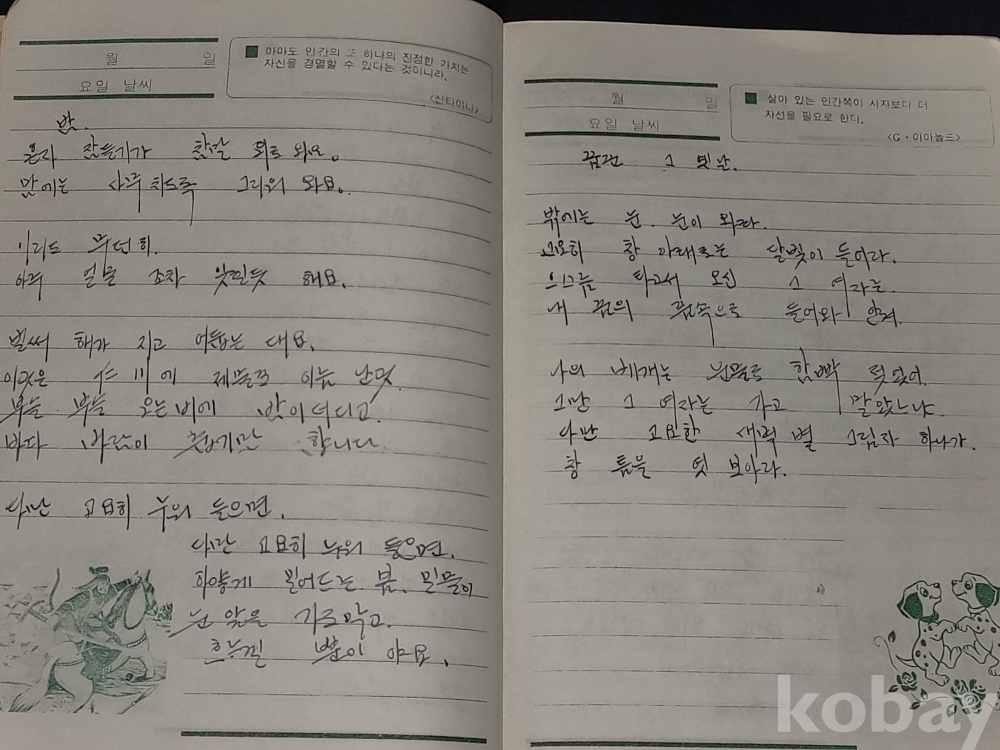 월 일
요일 날씨
아마도 인간의 또 하나의 진정한 가치는
자신을 경멸할 수 있다는 것이니라.
<산티아나>
밤
혼자 잠들기가 참말 외로와요.
맘에는 사무치도록 그리워 와요.
이리도 무던히.
아주 얼굴 조차 잊힐듯 해요.
벌써 해가 지고 어둡는 대요.
이곳은 仁川에 제물포 이름 난 곳.
부슬 부슬 오는 비에 밤이 더디고
바다 바람이 춥기만 합니다.
다만 고요히 누워 들으면.
다만 고요히 누워 들으면.
하얗게 밀어드는 봄 밀물이
눈 앞을 가로막고.
흐느낄 뿐이 야요.
월 일
요일 날씨
살아 있는 인간쪽이 사자보다 더
자선을 필요로 한다.
<G·아아놀드>
꿈꾼 그 옛날.
밖에는 눈. 눈이 와라.
고요히 창 아래로는 달빛이 들어라.
어스름 타고서 오신 그 여자는.
내 꿈의 품속으로 들어와 안겨.
나의 베개는 눈물로 함빡 젖었어.
그만 그 여자는 가고 말았느냐.
다만 고요한 새벽 별 그림자 하나가.
창 틈을 엿 보아라.
kobay